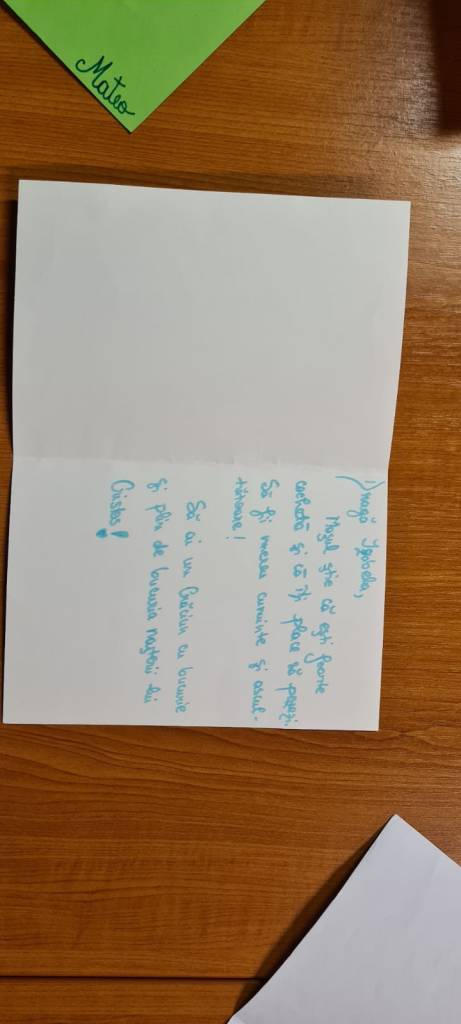 Mateo
Dragă Isabela,
Moșul știe că ești foarte
cochetă și că îți place să pozezi.
Să fi mereu cuminte și ascul-
tătoare!
Să ai un Crăciun cu bucurie
și plin de bucuria nașterii lui
Cristos!